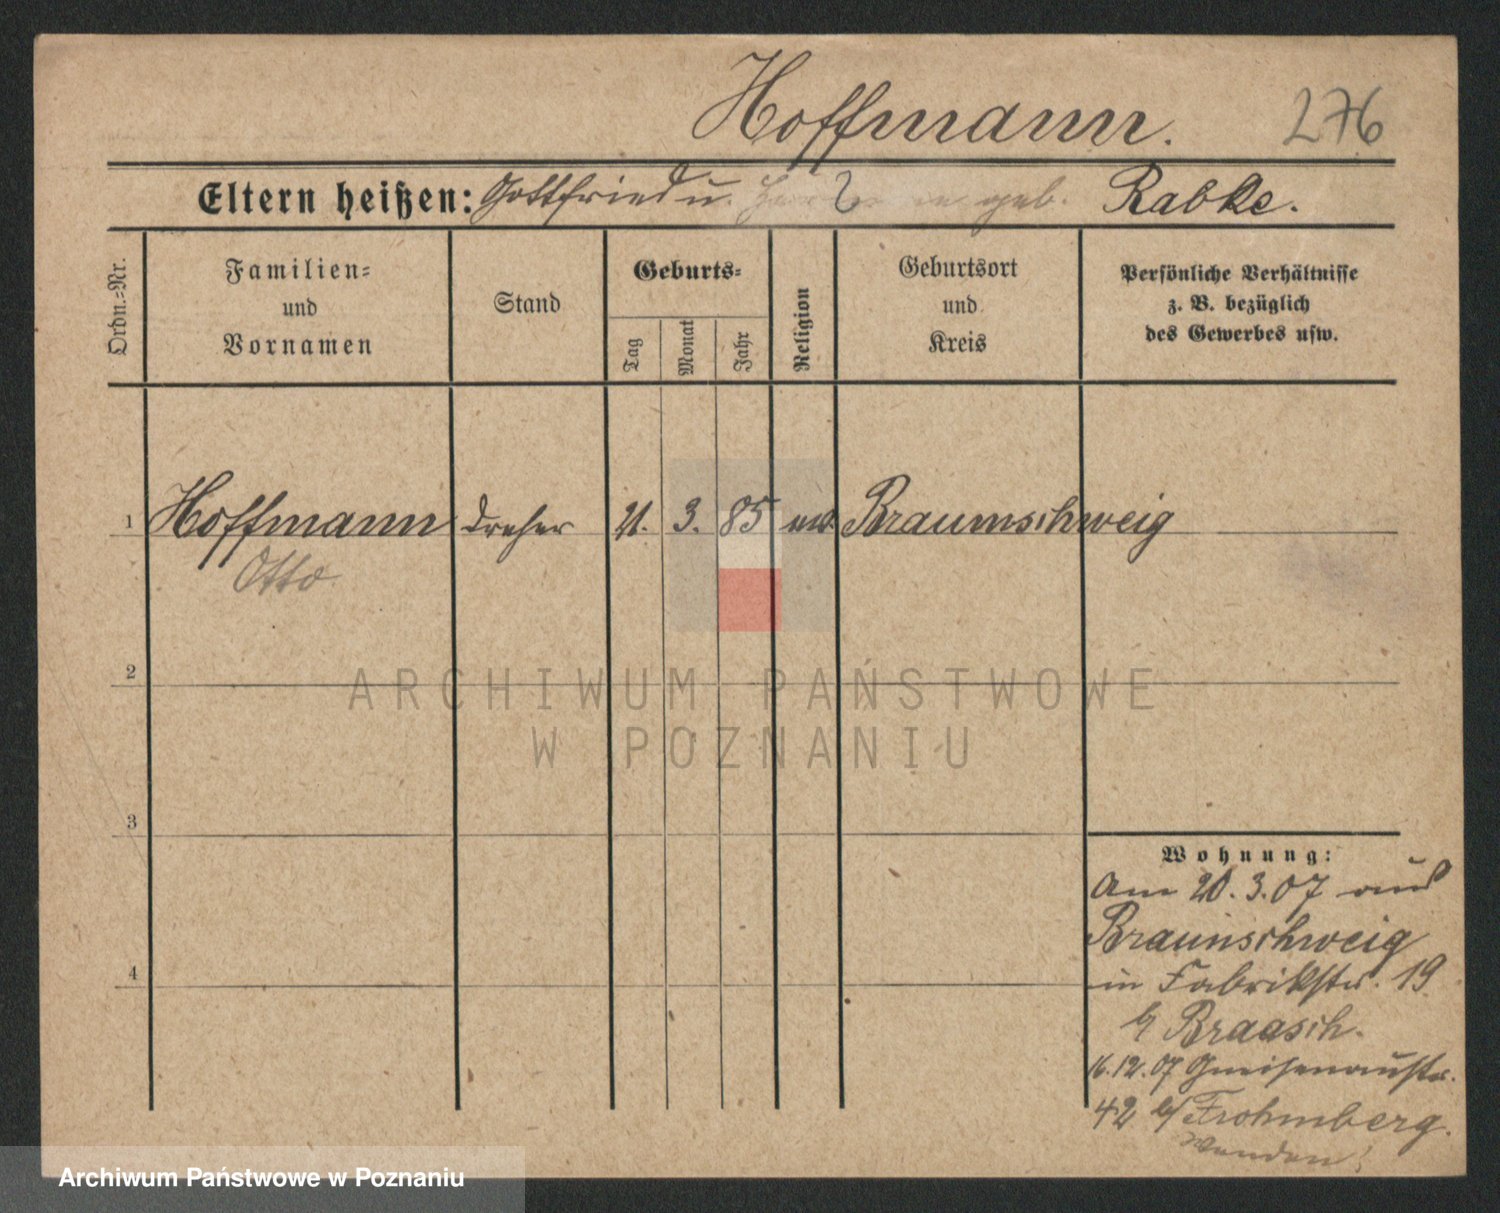 Hoffmann. 276
Eltern heißen: Gottfried u. geb. Rabke.
Ordn.=Nr.
Familien=
und
Vornamen
Stand
Geburts=
Tag
Monat
Jahr
Religion
Geburtsort
und
Kreis
Persönliche Verhältnisse
z. B. bezüglich
des Gewerbes usw.
1 Hoffmann Dreher 21. 3. 85 ev. Braunschweig
Otto
2
3
4
Wohnung:
Am 20.3.07 aus
Braunschweig
in Fabrikstr. 19
b/ Braasch.
16.12.07 Gneisenaustr.
42 b/ Frohmberg.
Wenden!
ARCHIWUM PAŃSTWOWE
W POZNANIU
Archiwum Państwowe w Poznaniu